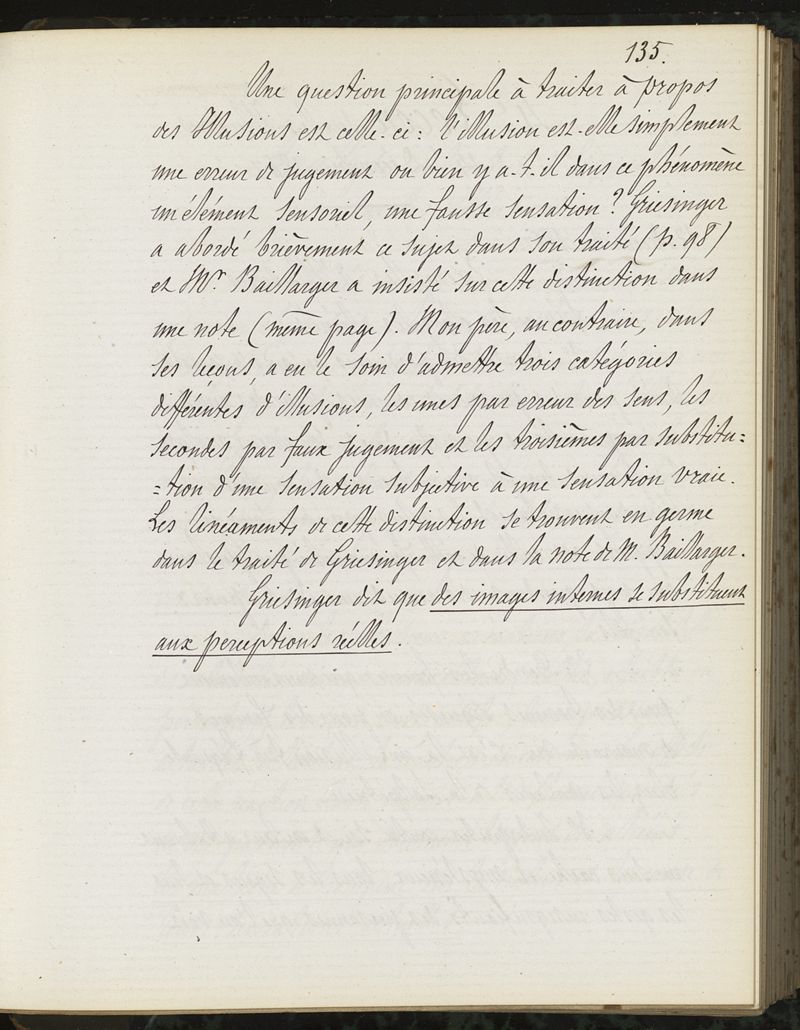 135.
Une question principale à traiter à propos
des Illusions est celle-ci : l'illusion est-elle simplement
une erreur de jugement ou bien y a-t-il dans ce phénomène
un élément sensoriel, une fausse sensation ? Griesinger
a abordé brièvement ce sujet dans son traité (p. 98)
et Mr Baillarger a insisté sur cette distinction dans
une note (même page). Mon père, au contraire, dans
ses leçons, a eu le soin d'admettre trois catégories
différentes d'illusions, les unes par erreur des sens, les
secondes par faux jugement et les troisièmes par substitu=
=tion d'une sensation subjective à une sensation vraie.
Les linéaments de cette distinction se trouvent en germe
dans le traité de Griesinger et dans la note de M. Baillarger.
Griesinger dit que des images internes se substituent
aux perceptions réelles.